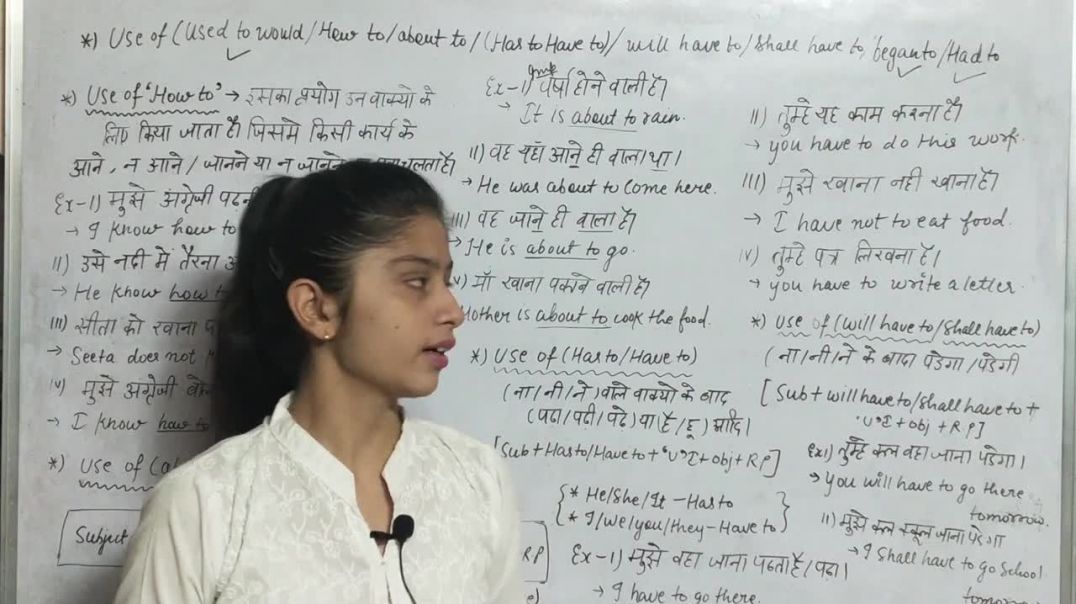 *) Use of (Used to would/How to/about to/(Has to Have to)/ will have to/Shall have to, began to/Had to
*) Use of 'How to' → इसका प्रयोग उन वाक्यो के
लिए किया जाता है। जिसमे किसी कार्य के
आने, न आने/ जानने या न जानने चलता है।
Ex-1) मुझे अंग्रेजी
→ I know how to
II) उसे नदी में तैरना
→ He know how
III) सीता को खाना
→ Seeta does not
IV) मुझे अंग्रेजी
→ I know how to
*) Use of
Subject
Ex-1) वर्षा होने वाली है।
→ It is about to rain.
II) वह यहाँ आने ही वाला था।
→ He was about to come here.
III) वह जाने ही वाला है।
→ He is about to go.
माँ खाना पकाने वाली है।
Mother is about to cook the food.
*) Use of (Has to/Have to)
(ना/नी/ने) वाले वाक्यो के बाद
(पढा/पढी/पढे) या (है/हू) आदि।
[Sub + Has to/Have to + 'V'I + obj + RP]
* He/She/It - Has to
* I/we/you/they - Have to
RP
Ex-1) मुझे वहा जाना पढता है/पढा।
→ I have to go there.
II) तुम्हे यह काम करना है।
→ you have to do this work.
III) मुझे खाना नही खाना है।
→ I have not to eat food.
IV) तुम्हे पत्र लिखना है।
→ you have to write a letter.
*) Use of (will have to/Shall have to)
(ना/नी/ने के बाद पडेगा/पडेगी
[Sub + will have to/shall have to +
'V'I + obj + RP]
Ex1) तुम्हे कल वहा जाना पडेगा।
→ you will have to go there
tomorrow.
II) मुझे कल स्कूल जाना पडेगा
→ I Shall have to go School